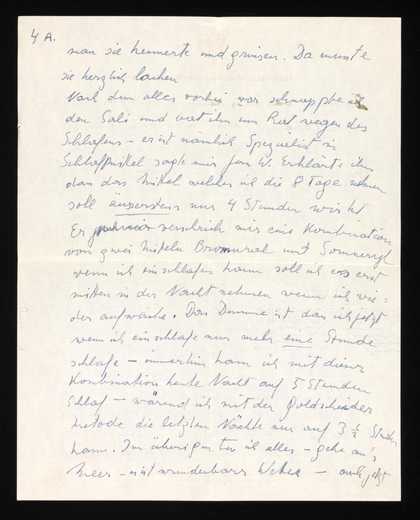 4 A.
man sie hemerte und grinsen. Da musste
sie herzlich lachen
Nach dem alles vorbei war schnappte ich
den Sali und bat ihn um Rat wegen des
Schlafens – er ist nämlich Spezialist in
Schlafmittel sagte mir Frau W. Erklärte ihm
dass das Mittel welches ich die 8 Tage nehmen
soll äusserstens nur 4 Stunden wirkt
Er verschrieb mir eine Kombination
von zwei Mitteln Bromural und Somneryl
wenn ich einschlafen kann soll ich es erst
mitten in der Nacht nehmen wenn ich wie-
der aufwache. Das Dumme ist dass ich jetzt
wenn ich einschlafe nur mehr eine Stunde
schlafe – immerhin kam ich mit dieser
Kombination heute Nacht auf 5 Stunden
Schlaf – während ich mit der Goldscheider
Metode die letzten Nächte nur auf 3 ½ Stunden
kam. Im übrigen tu ich alles – gehe an's
Meer – es ist wunderbares Wetter – auch jetzt